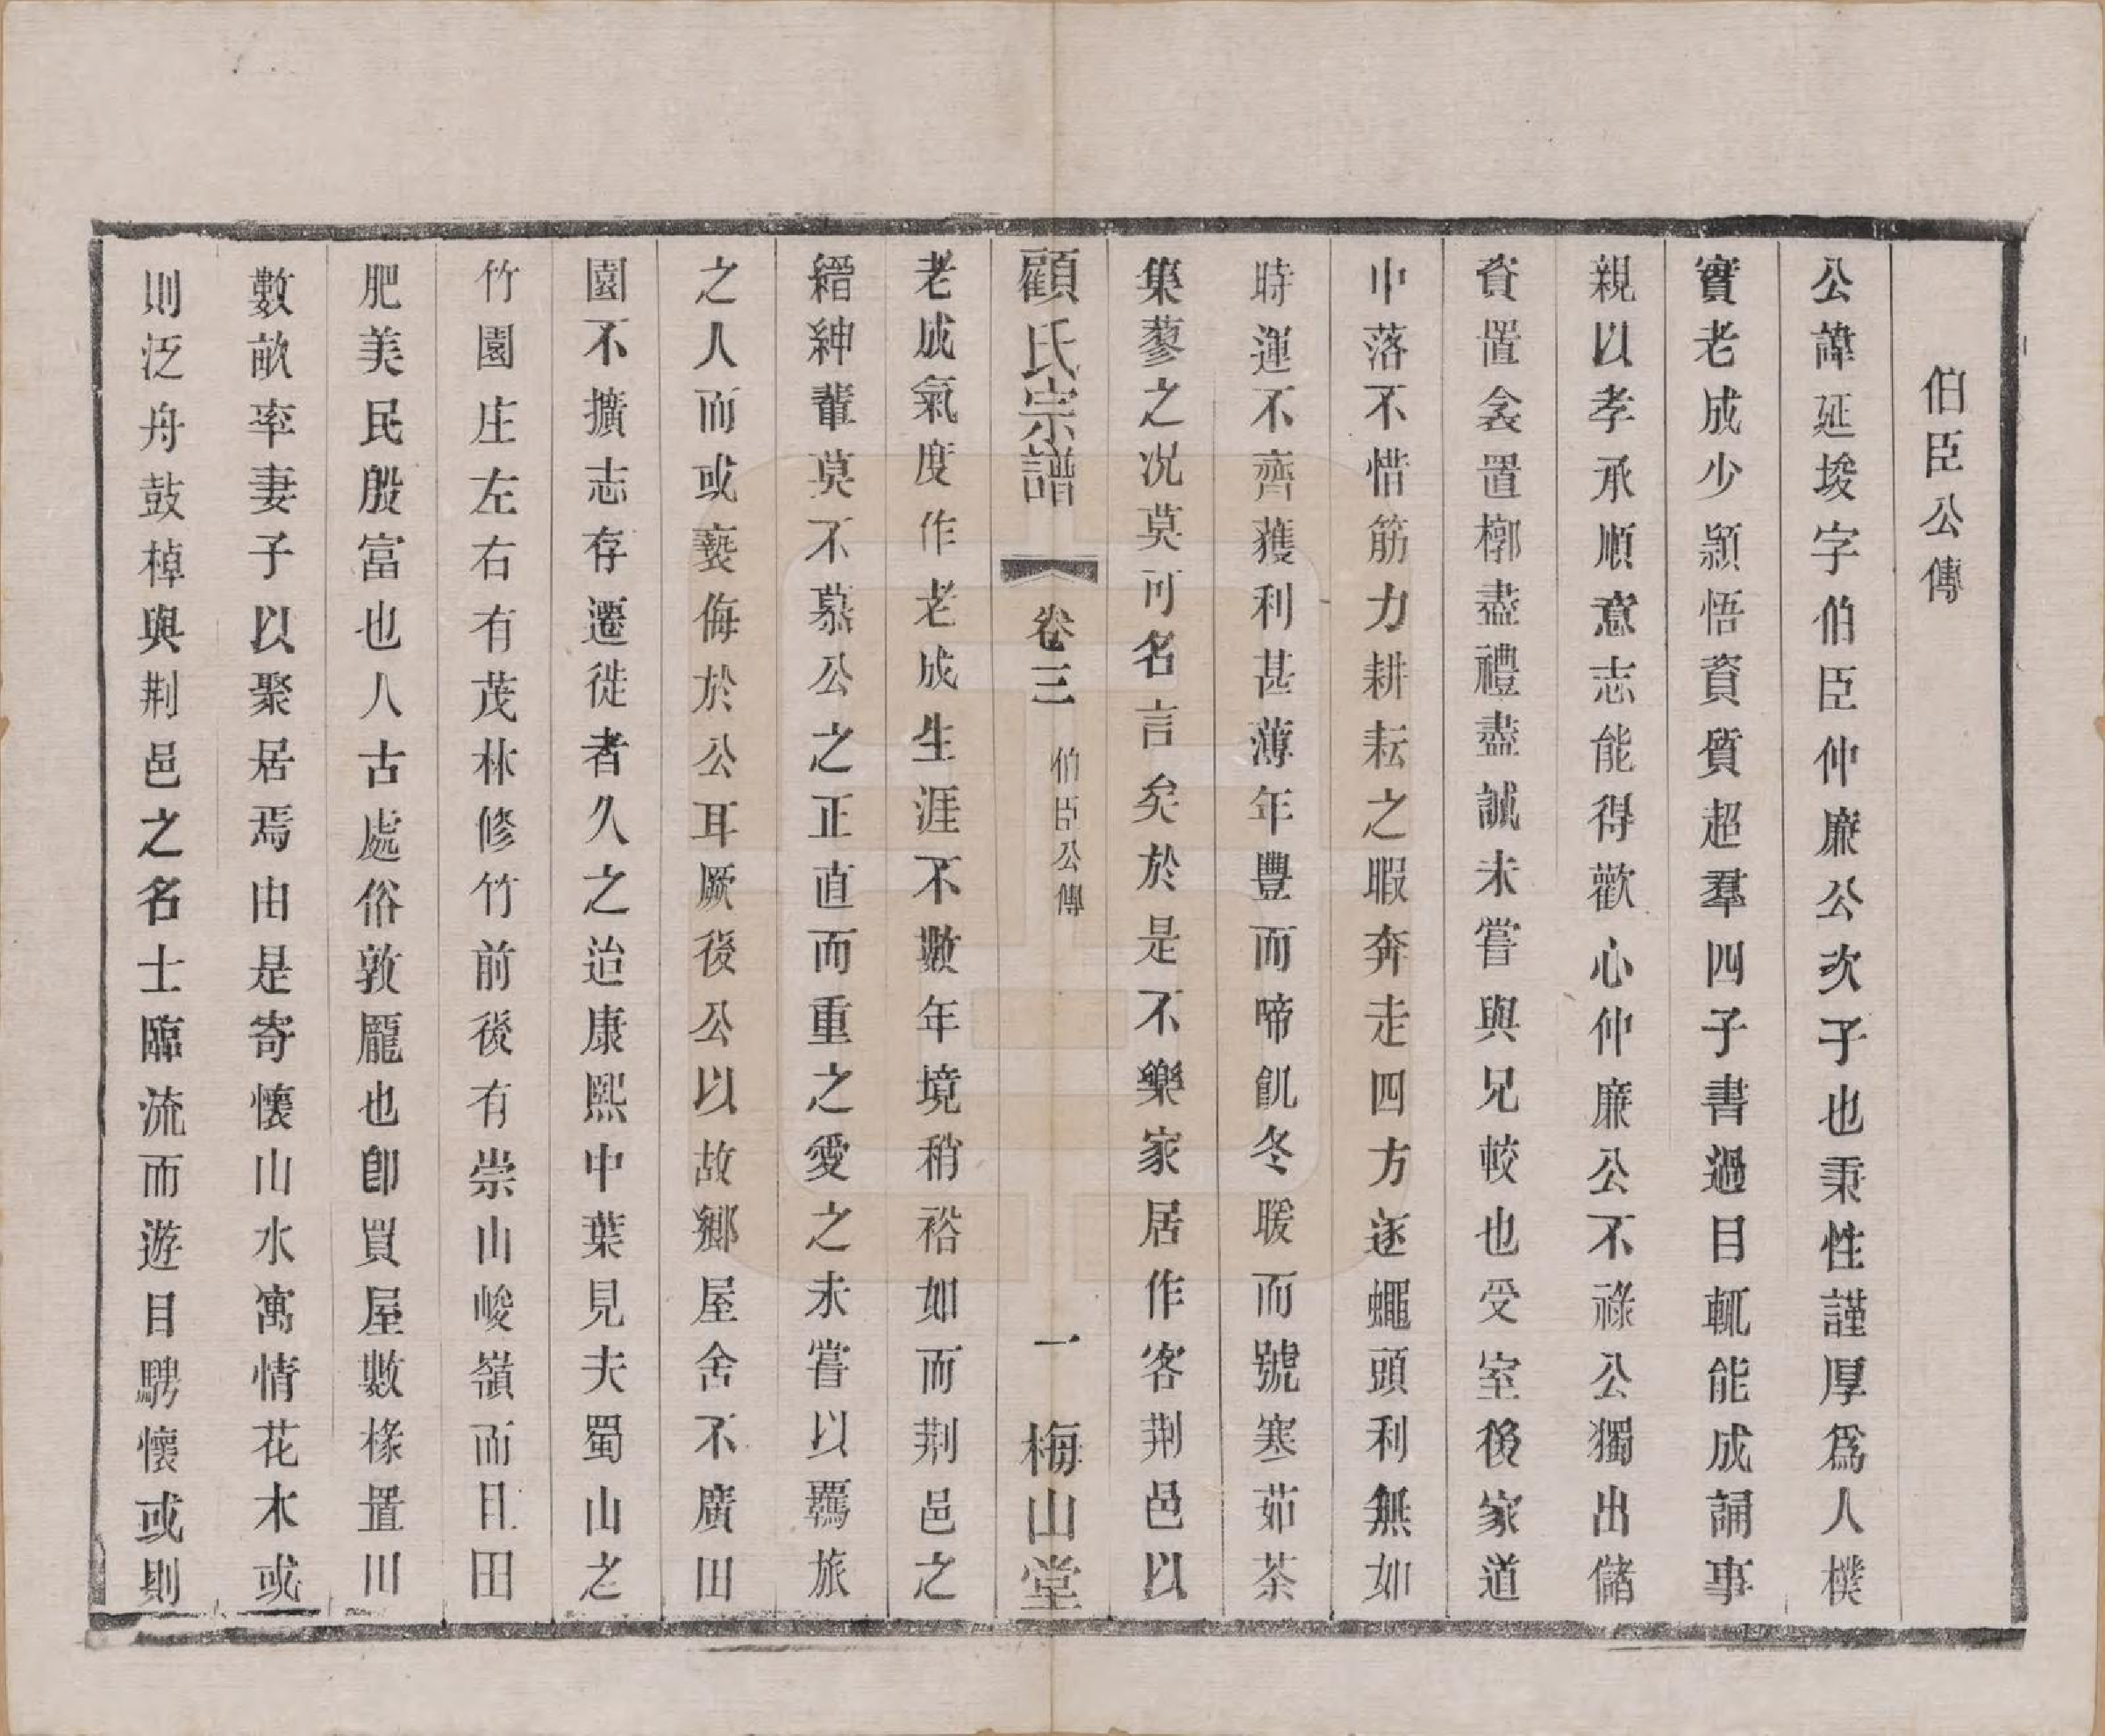 伯臣公傳
公諱延埈字伯臣仲廉公次子也秉性謹厚爲人樸
實老成少頴悟資質超羣四子書過目輒能成誦事
親以孝承順意志能得歡心仲廉公不祿公獨出儲
資置衾置槨盡禮盡誠未嘗與兄較也受室後家道
中落不惜筋力耕耘之暇奔走四方逐蠅頭利無如
時運不齊獲利甚薄年豐而啼飢冬暖而號寒茹茶
集蓼之况莫可名言矣於是不樂家居作客荆邑以
顧氏宗譜 卷三 伯臣公傳 一 梅山堂
老成氣度作老成生涯不數年境稍裕如而荆邑之
縉紳輩莫不慕公之正直而重之愛之未嘗以羈旅
之人而或褻侮於公耳厥後公以故鄉屋舍不廣田
園不擴志存遷徙者久之迨康熙中葉見夫蜀山之
竹園庄左右有茂林修竹前後有崇山峻嶺而且田
肥美民殷富也人古處俗敦龐也卽買屋數椽置田
數畝率妻子以聚居焉由是寄懷山水寓情花木或
則泛舟鼓棹與荆邑之名士臨流而遊目騁懷或則